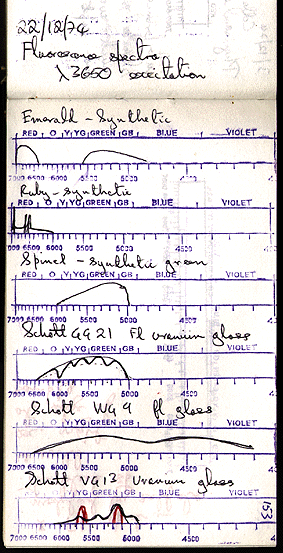 22/12/74
Fluorescence spectra
λ 3650 excitation
Emerald - Synthetic
RED O Y YG GREEN GB BLUE VIOLET
7000 6500 6000 5500 5000 4500
Ruby - Synthetic
RED O Y YG GREEN GB BLUE VIOLET
7000 6500 6000 5500 5000 4500
Spinel - synthetic green
RED O Y YG GREEN GB BLUE VIOLET
7000 6500 6000 5500 5000 4500
Schott GG 21 Fl uranium glass
RED O Y YG GREEN GB BLUE VIOLET
7000 6500 6000 5500 5000 4500
Schott WG 9 fl glass
RED O Y YG GREEN GB BLUE VIOLET
7000 6500 6000 5500 5000 4500
Schott VG 13 Uranium glass
RED O Y YG GREEN GB BLUE VIOLET
7000 6500 6000 5500 5000 4500
153